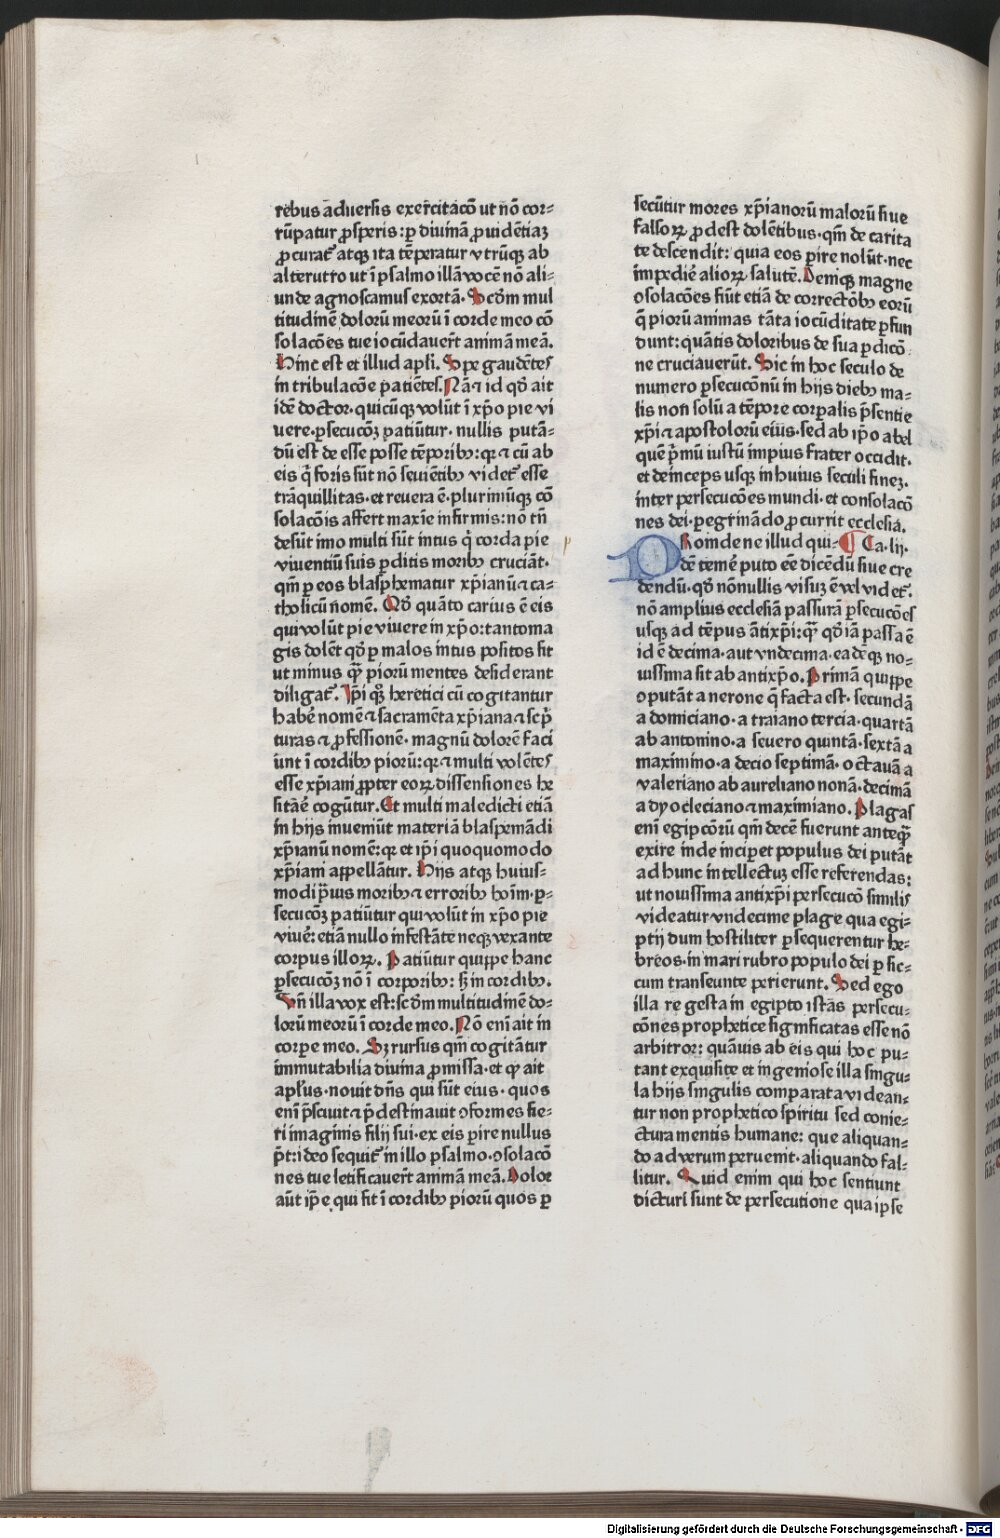 rebus aduersis exercitacō ut nō cor⸗
rūpatur ꝓsperis: ꝑ diuinā ꝓuidētiaꝫ
ꝓcurat᷒ atqꝫ ita tēperatur vtrūqꝫ ab
alterutro ut ī psalmo illā vocē nō ali⸗
unde agnoscamus exortā. Scdm mul
titudinē dolorū meorū ī corde meo cō
solacōes tue iocūdauert animā meā.
Hinc est et illud apli. Spe gaudētes
in tribulacōe patiētes. Nā ⁊ id qd ait
idē doctor. quicūqꝫ volūt ī xp̄o pie vi
uere. ꝑsecucōꝫ patiūtur. nullis putā⸗
dū est deesse posse tēporibꝫ: qꝛ ⁊ cū ab
eis q̄ foris sūt nō seuiētibꝫ videt᷒ esse
trāquillitas. et reuera ē. plurimūqꝫ cō
solacōis affert maxīe infirmis: nō tn̄
desūt imo multi sūt intus q̄ corda pie
viuentiū suis ꝑditis moribꝫ cruciāt.
qm̄ ꝑ eos blasphematur xp̄ianū ⁊ ca⸗
tholicū nomē. Qd quāto carius ē eis
qui volūt pie viuere in xp̄o: tanto ma
gis dolēt qd ꝑ malos intus positos fit
ut minus qꝫ̄ piorū mentes desiderant
diligat᷒. Ip̄i qꝫ heretici cū cogitantur
habē nomē ⁊ sacramēta xp̄iana ⁊ scp̄
turas ⁊ ꝓfessionē. magnū dolorē faci
unt ī cordibꝫ piorū: qꝛ ⁊ multi volētes
esse xp̄iani ꝓpter eoꝝ dissensiones he
sitāē cogūtur. Et multi maledicti etiā
in hijs inueniūt materiā blaspemādi
xp̄ianū nomē: qꝛ et ip̄i quoquomodo
xp̄iani appellātur. Hijs atqꝫ huius⸗
modi p̄uis moribꝫ ⁊ erroribꝫ hoīm. ꝑ⸗
secucōꝫ patiūtur qui volūt in xp̄o pie
viue: etiā nullo infestāte neqꝫ vexante
corpus illoꝝ. Patiūtur quippe hanc
ꝑsecucōꝫ nō ī corporibꝫ: sꝫ in cordibꝫ.
Vn̄ illa vox est: scdm multitudinē do⸗
lorū meorū ī corde meo. Nō enī ait in
corpe meo. Sꝫ rursus qm̄ cogitātur
immutabilia diuina ꝓmissa. et qꝫ ait
aplus. nouit dn̄s qui sūt eius. quos
enī p̄sciuit ⁊ p̄destinauit ɔformes fie⸗
ri imaginis filij sui. ex eis ꝑire nullus
p̄t: ideo sequit᷒ in illo psalmo. ɔsolacō
nes tue letificauert animā meā. Dolor
aūt ip̄e qui fit ī cordibꝫ piorū quos ꝑ
secūtur mores xp̄ianorū malorū siue
falsoꝝ ꝓdest dolētibus. qm̄ de carita
te descendit: quia eos ꝑire nolūt. nec
impedīe alioꝝ salutē. Deniqꝫ magne
ɔsolacōes fiūt etiā de correctōibꝫ eorū
q̄ piorū animas tāta iocūditate ꝑfun
dunt: quātis doloribus de sua ꝑdicō
ne cruciauerūt. Sic in hoc seculo de
numero ꝑsecucōnū in hijs diebꝫ ma⸗
lis non solū a tēpore corporalis p̄sentie
xp̄i ⁊ apostolorū eius. sed ab ip̄o abel
quē p̄mū iustū impius frater occidit.
et deinceps usqꝫ in huius seculi fineꝫ.
inter persecucōes mundi. et consolacō
nes dei. peregrinādo ꝓcurrit ecclesia.
PRoinde ne illud qui⸗ ¶ Ca. lij.
dē temē puto eē dicēdū siue cre
dendū. qd nōnullis visuꝫ ē vel videt᷒.
nō amplius ecclesiā passurā ꝑsecucōes
usqꝫ ad tēpus ātixp̄i: qꝫ̄ qd iā passa ē
id ē decima. aut vndecima. eadeqꝫ no⸗
uissima sit ab antixp̄o. Primā quippe
ɔputāt a nerone q̄ facta est. secundā
a domiciano. a traiano tercia. quartā
ab antonino. a seuero quintā. sextā a
maximino. a decio septimā. octauā a
valeriano ab aureliano nonā. decimā
a dyocleciano ⁊ maximiano. Plagas
enī egipcōrū qm̄ decē fuerunt anteqꝫ̄
exire inde inciperet populus dei putāt
ad hunc intellectuꝫ esse referendas:
ut nouissima antixp̄i persecucō similis
videatur vndecime plage qua egi⸗
ptij dum hostiliter ꝑsequerentur he⸗
breos. in mari rubro populo dei ꝑ sic⸗
cum transeunte perierunt. Sed ego
illa re gesta in egipto istās persecu⸗
cōnes prophetice significatas esse nō
arbitror: quāuis ab eis qui hoc pu⸗
tant exquisite et ingeniose illa singu⸗
la hijs singulis comparata videan⸗
tur non prophetico spiritu sed conie⸗
ctura mentis humane: que aliquan⸗
do ad verum peruenit. aliquando fal⸗
litur. Quid enim qui hoc sentiunt
dicturi sunt de persecutione qua ipse
Digitalisierung gefördert durch die Deutsche Forschungsgemeinschaft - DFG